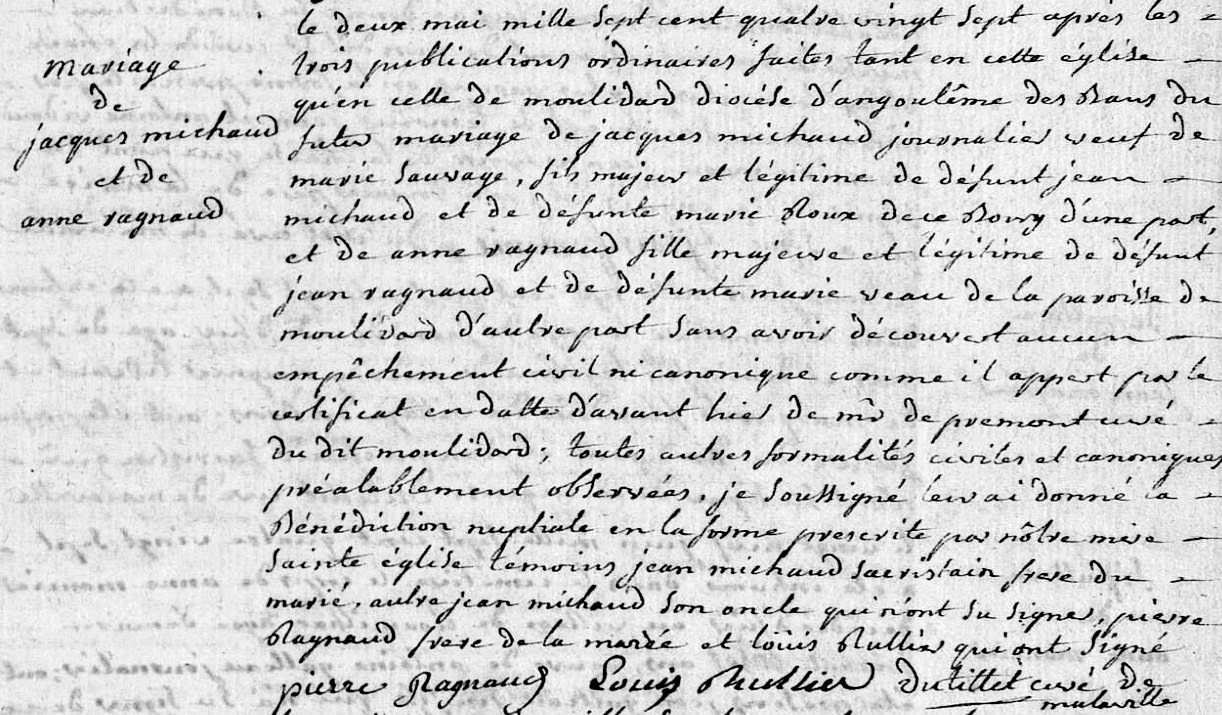 mariage
de
jacques michaud
et de
anne ragnaud
le deux mai mille sept cent quatre vingt sept après les
trois publications ordinaires faites tant en cette église
qu'en celle de moulidard diocése d'angoulême des Bans du
futur mariage de jacques michaud journalier veuf de
marie sauvage, fils majeur et légitime de défunt jean
michaud et de défunte marie Roux de ce Bourg d'une part,
et de anne ragnaud fille majeure et légitime de défunt
jean ragnaud et de défunte marie veau de la paroisse de
moulidard d'autre part sans avoir découvert aucun
empêchement civil ni canonique comme il appert par le
certificat en datte d'avant hier de mr de premont curé
du dit moulidard; toutes autres formalités civiles et canoniques
préalablement observées, je soussigné leur ai donné la
Bénédiction nuptiale en la forme prescrite par nôtre mere
sainte église témoins jean michaud sacristain frere du
marié, autre jean michaud son oncle qui n'ont su signer, pierre
Ragnaud frere de la mariée et loüis Rullier qui ont signé
pierre Ragnaud Louis Rullier Dutillet curé de
malaville